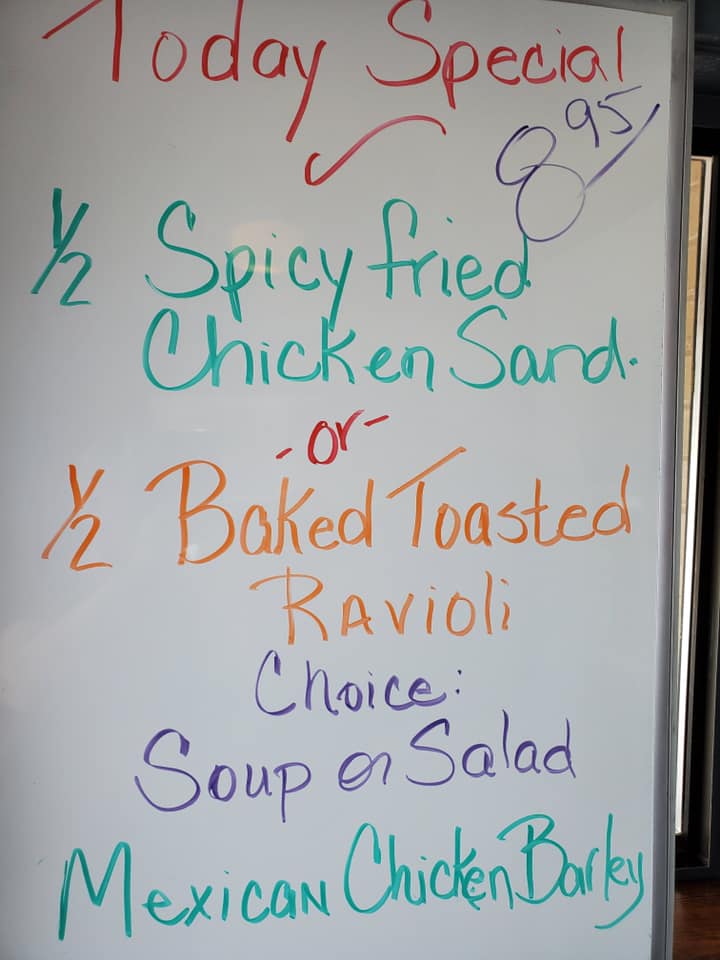 Today Special
8 95/
1/2 Spicy fried
Chicken Sand.
-or-
1/2 Baked Toasted
RAvioli
Choice:
Soup or Salad
MexicaN Chicken Barley